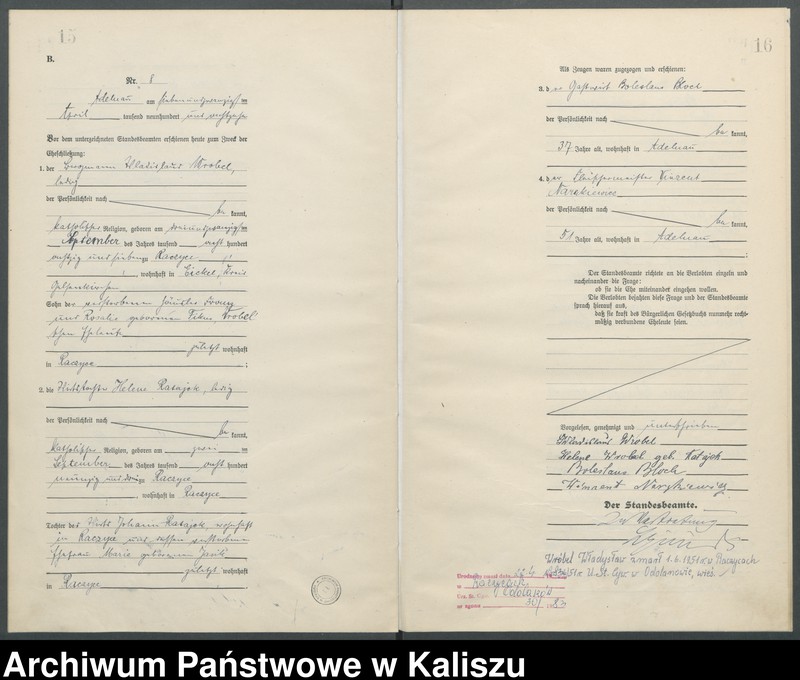 15
B.
Nr. 8
Adelnau am siebenundzwanzigsten
April tausend neunhundert und achtzehn
Vor dem unterzeichneten Standesbeamten erschienen heute zum Zweck der
Eheschließung:
1. der Bergmann Wladislaus Wrobel,
ledig
der Persönlichkeit nach
be kannt,
katholischer Religion, geboren am
September des Jahres tausend acht hundert
achtzig und sieben zu Raczyce
, wohnhaft in Eickel, Kreis
Gelsenkirchen
Sohn des verstorbenen Häusler Franz
und Rosalie geborenen Wrobel
schen Eheleute
zuletzt wohnhaft
in Raczyce ;
2. die Wirtstochter Helene Ratajok, ledig
der Persönlichkeit nach
be kannt,
katholischer Religion, geboren am zwei
September des Jahres tausend acht hundert
neunzig und zu Raczyce
, wohnhaft in Raczyce
Tochter des Wirts Johann Ratajok, wohnhaft
in Raczyce und dessen verstorbene
Ehefrau Marie geborenen
zuletzt wohnhaft
in Raczyce
16
Als Zeugen waren zugezogen und erschienen:
3. der Gastwirt Boleslaus Bloch
der Persönlichkeit nach
be kannt,
37 Jahre alt, wohnhaft in Adelnau
4. der Fleischermeister Vincent
Narzkiewicz
der Persönlichkeit nach
be kannt,
51 Jahre alt, wohnhaft in Adelnau
;
Der Standesbeamte richtete an die Verlobten einzeln und
nacheinander die Frage:
ob sie die Ehe miteinander eingehen wollen.
Die Verlobten bejahten diese Frage und der Standesbeamte
sprach hierauf aus,
daß sie kraft des Bürgerlichen Gesetzbuchs nunmehr recht-
mäßig verbundene Eheleute seien.
Vorgelesen, genehmigt und unterschrieben
Wladislaus Wrobel
Helene Wrobel geb. Ratajok
Boleslaus Bloch
Der Standesbeamte.
In Vertretung
Wróbel Władysław zmarł 1.6.1951 r. w Raczycach
U.St.Cyw w Odolanowie, wieś
Raczycach
Odolanów
Archiwum Państwowe w Kaliszu